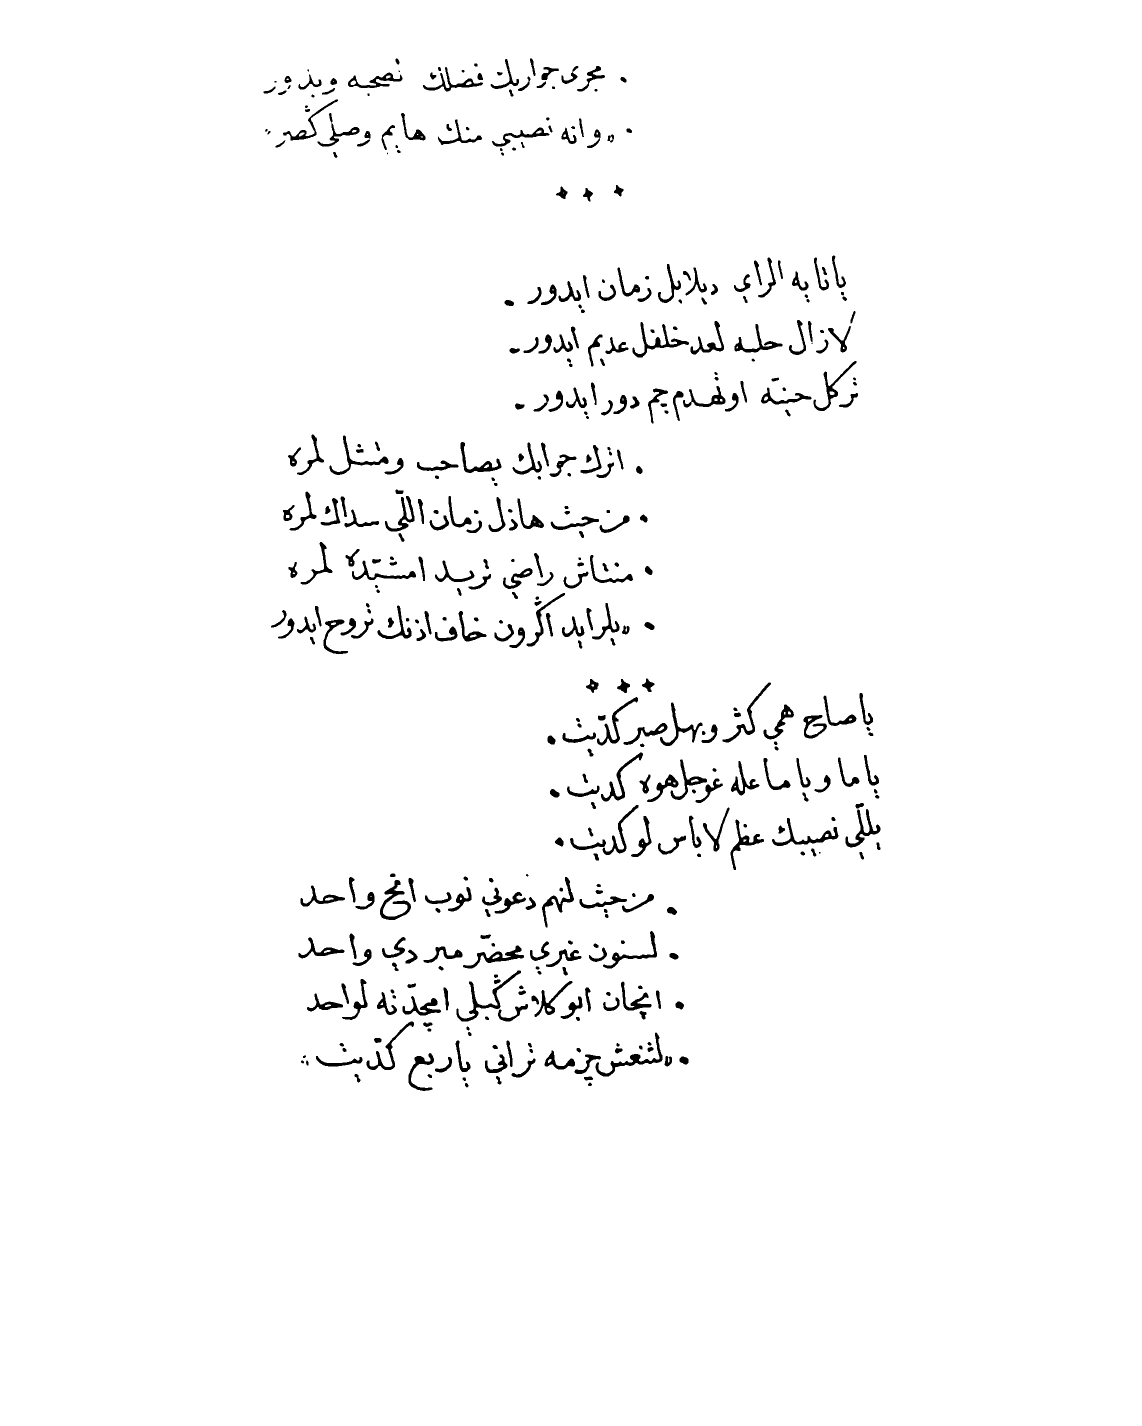 . مجرى جواريك فضلك نصحبه وبذور
. وانه نصيبي منك هايم وصلي گصر
ياتايه الراي ديلابل زمان ايدور .
لازال حلبه لعد خلفل عديم ايدور .
تركل حيته اوتهدم چم دور ايدور .
. اترك جوابك بصاحب ومثل لمره
. من حيث هاذل زمان اللّي سداك لمره
. منتاش راضي تريد امشيّده لمره
. يلرايد اگرون خاف اذنك تروح ايدور
ياصاح همي كثر وبهل صبر كدّيت .
ياما وياما عله غوجل هوه كديت .
يللّي نصيبك عظم لاباس لو كديت .
. من حيث لنهم دعوني نوب انخ واحد
. لسنون غيري محضّر مبردي واحد
. انچان ابو كلاش گبلي امچدّته لواحد
. لشنعش چزمه تراني ياربع كدّيت